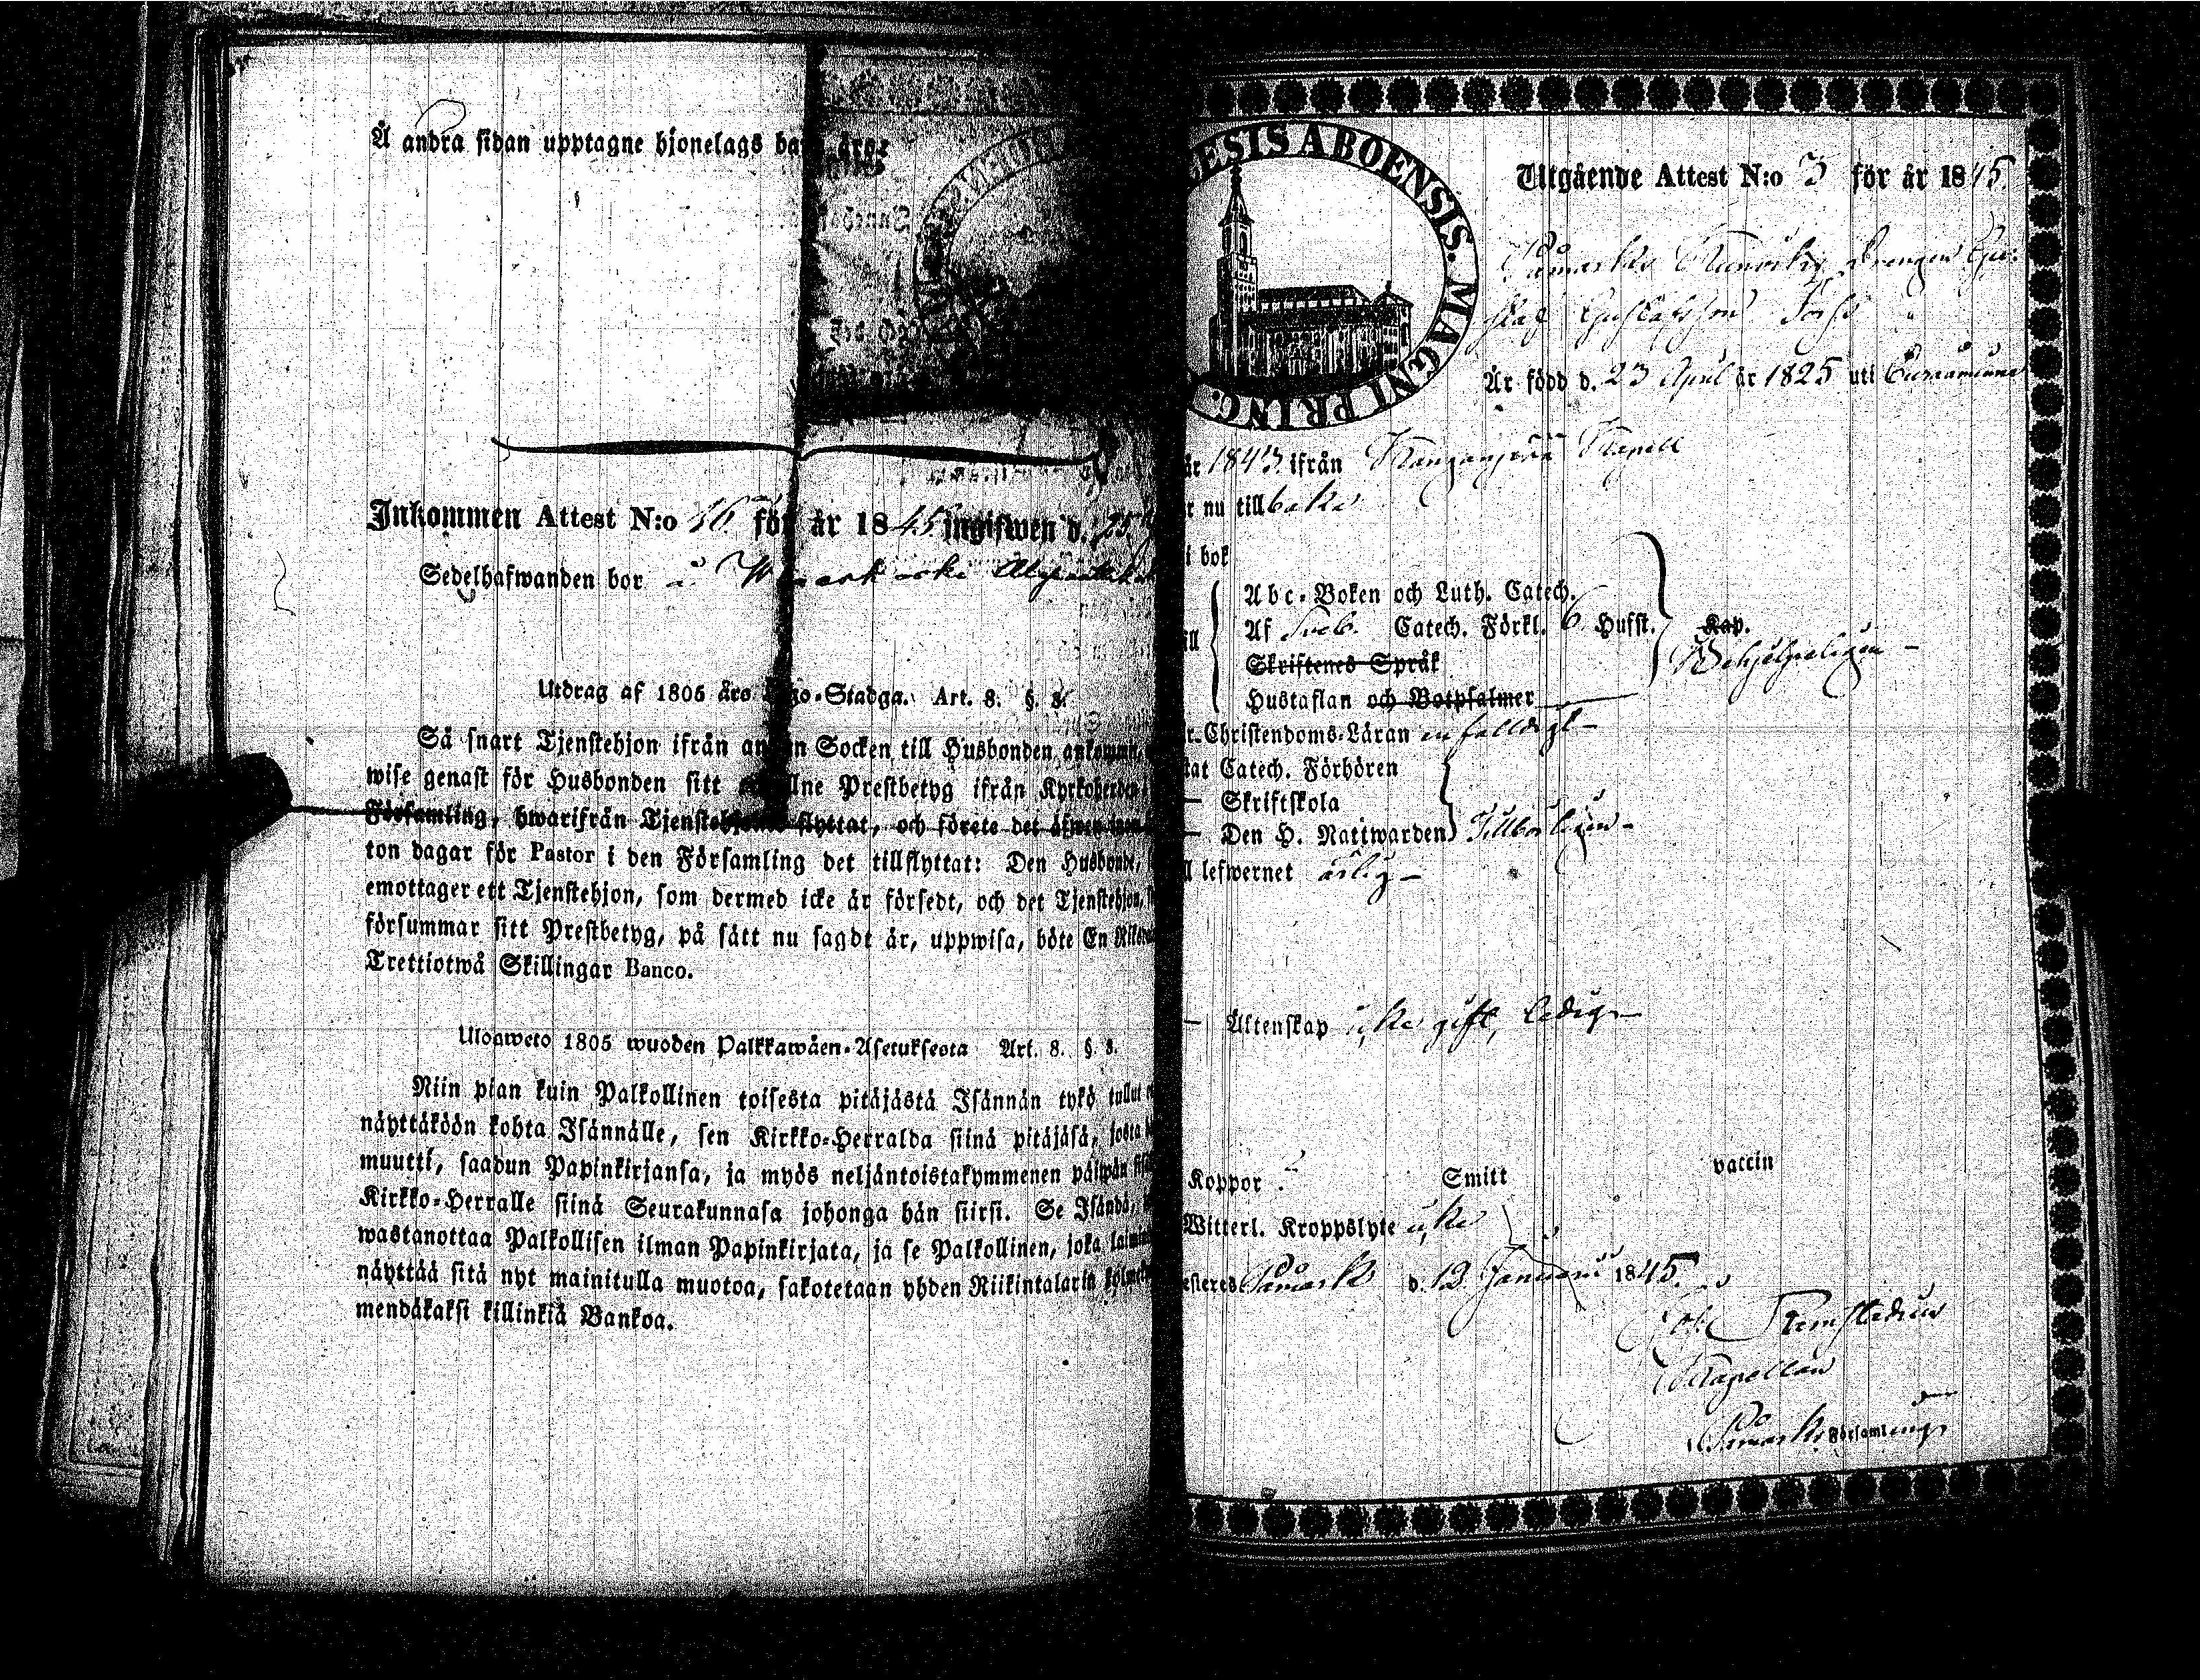 Å andra sidan upptagne hjonelags barn äro:
Inkommen Attest N:o 16 för år 1845 ingifwen d. 25
Sedelhafwanden bor å
Utdrag af 1805 års Lego-Stadga. Art. 8. §. 8.
Så snart Tjenstehjon ifrån annan Socken till Husbonden ankommit,
wise genast för Husbonden sitt erhållne Prestbetyg ifrån Kyrkoherden i
Församling, hwarifrån Tjenstehjonet flyttat, och förete det äfwen inom
ton dagar för Pastor i den Församling det tillflyttat: Den Husbonde,
emottager ett Tjenstehjon, som dermed icke är försedt, och det Tjenstehjon,
försummar sitt Prestbetyg, på sätt nu sagdt är, uppwisa, böte En Riksdaler
Trettiotwå Skillingar Banco.
Ulosweto 1805 wuoden Palkkawäen-Asetuksesta Art. 8. §. 8.
Niin pian kuin Palkollinen toisesta pitäjästä Isännän tykö tullut
näyttäköön kohta Isännälle, sen Kirkko-Herralda siinä pitäjäsä, josta
muutti, saadun Papinkirjansa, ja myös neljäntoistakymmenen päiwän
Kirkko-Herralle siinä Seurakunnasa johonga hän siirsi. Se Isändä,
wastanottaa Palkollisen ilman Papinkirjata, ja se Palkollinen, joka
näyttää sitä nyt mainitulla muotoa, sakotetaan yhden Riikintalarin
mendäkaksi killinkiä Bankoa.
ESIS ABOENSIS. MAGNI PRINC.
Utgående Attest N:o 3 för år 1845.
Påmarks Drengen Gu-
staf Gustafsson
Är född d. 23 April år 1825 uti Euraåminne
år 1843 ifrån Kangasjerwi Kapell
r nu tillbaka
i bok
Abc-Boken och Luth. Catech.
ill Af Sveb. Catech. Förkl. 6 Hufst. Kap.
Skriftenes Språk
Behjelpeligen –
Hustaflan och Botpsalmer
r. Christendoms-Läran enfalldigt –
tat Catech. Förhören
— Skriftskola
— Den H. Nattwarden Tillbörligen –
l lefwernet ärlig –
— Äktenskap icke gift, ledig –
Koppor Smitt vaccin
Witterl. Kroppslyte icke
esteres Påmark d. 12 Januarii 1845.
Kapellan
Påmarks Församling